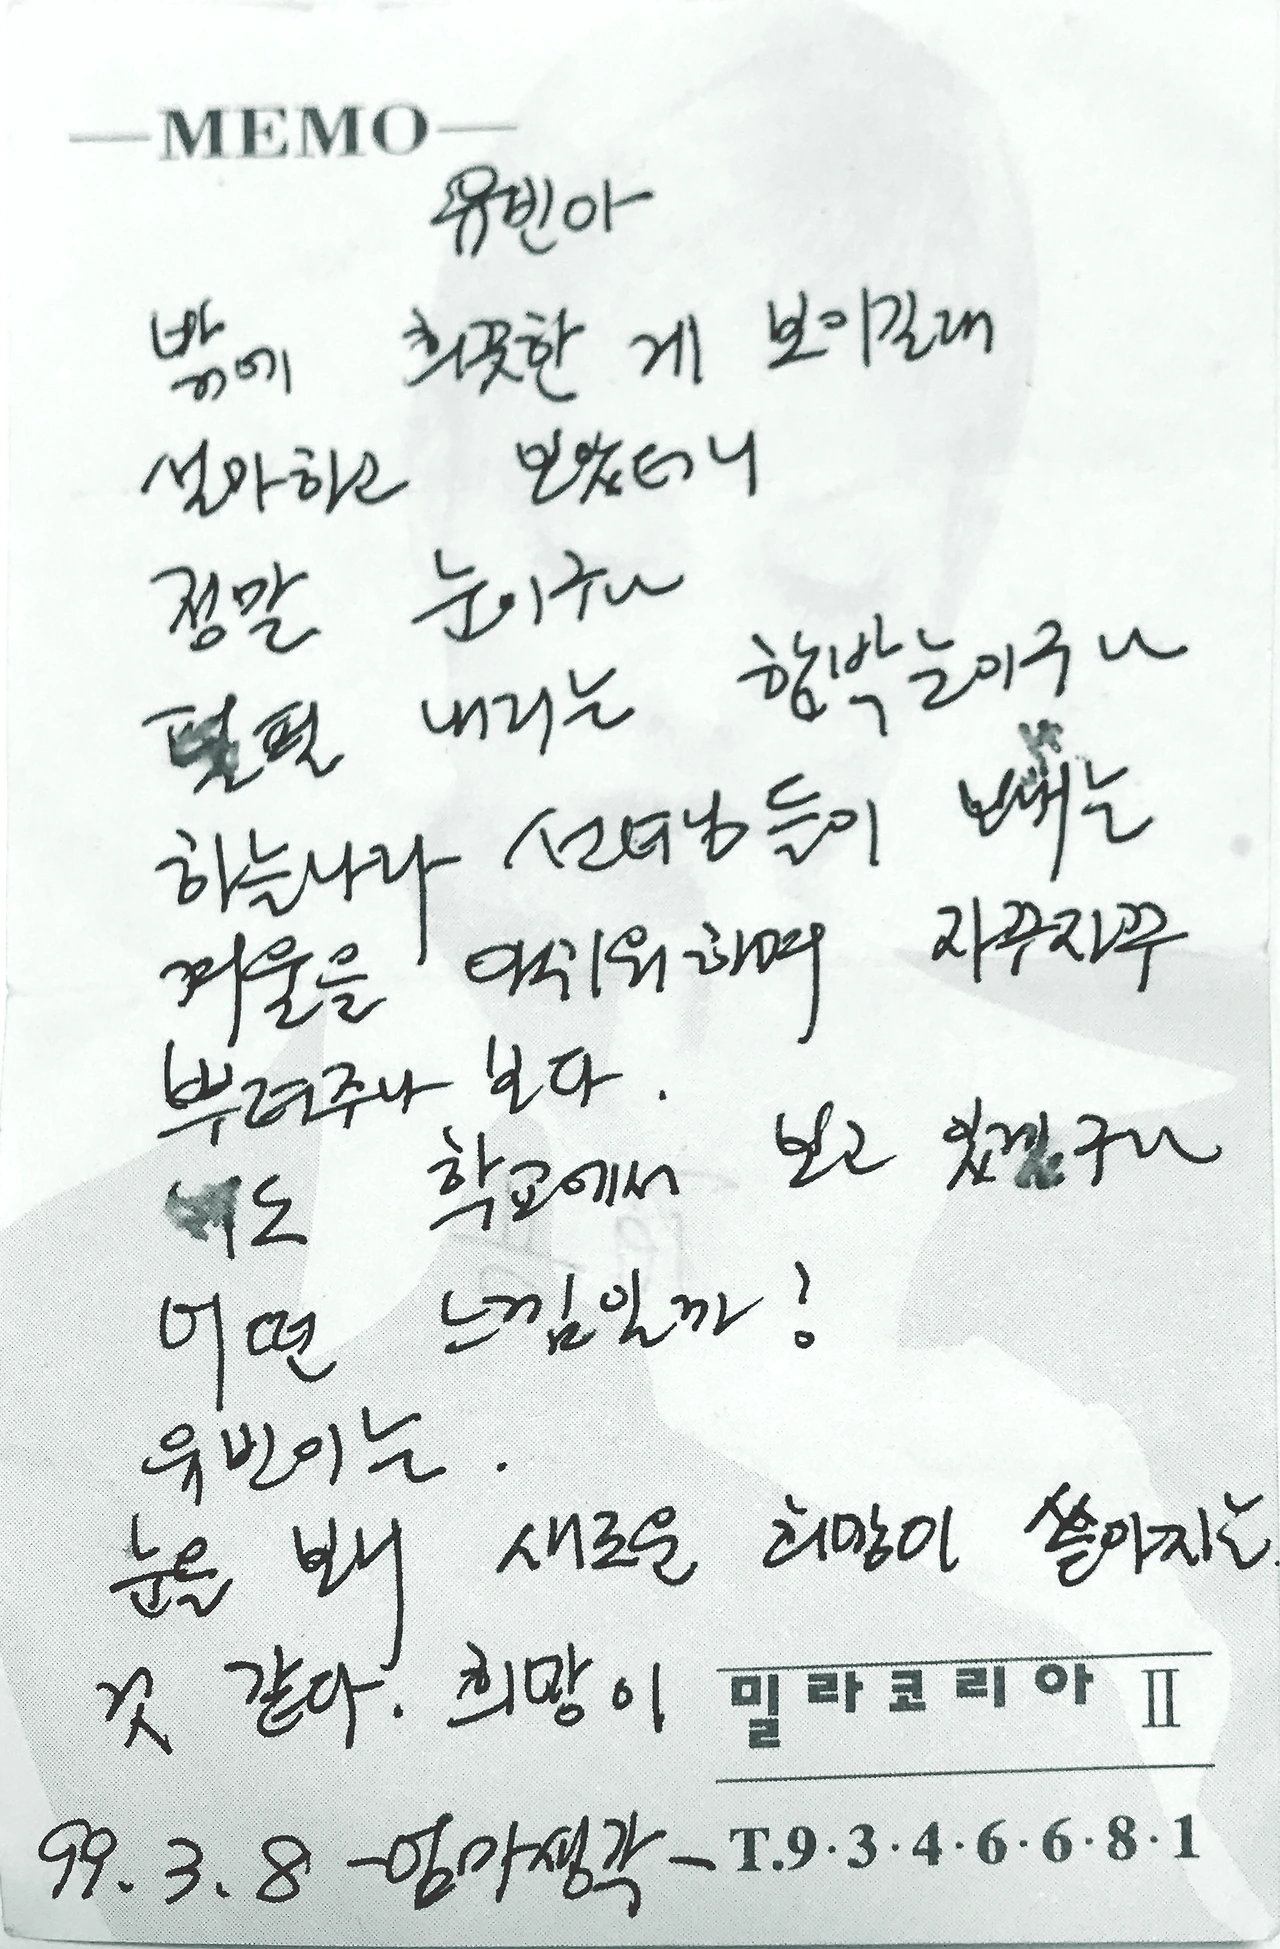 MEMO
유빈아
밖에 희끗한 게 보이길래
설마하고 보았더니
정말 눈이구나
펄펄 내리는 함박눈이구나
하늘나라 선녀님들이 보내는
겨울을 아쉬워하며 자꾸자꾸
뿌려주나 보다.
너도 학교에서 보고 있겠구나
어떤 느낌일까?
유빈이는.
눈을 보니 새로운 희망이 쏟아지는
것 같다. 희망이
밀라코리아 II
99.3.8 -엄마생각-
T.9·3·4·6·6·8·1